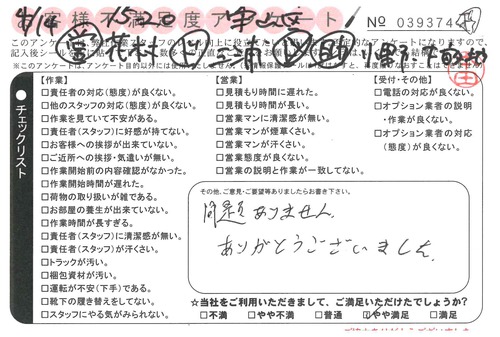 お客様不満足度アンケート
8/14
15220
No 039374
【作業】
□責任者の対応(態度)が良くない。
□他のスタッフの対応(態度)が良くない。
□作業を見ていて不安がある。
□責任者(スタッフ)に好感が持てない。
□お客様への挨拶が出来ていない。
□ご近所への挨拶・気遣いが無い。
□作業開始前の内容確認がなかった。
□作業開始時間が遅れた。
□荷物の取り扱いが雑である。
□お部屋の養生が出来ていない。
□作業時間が長すぎる。
□責任者(スタッフ)に清潔感が無い。
□責任者(スタッフ)が汗くさい。
□トラックが汚い。
□梱包資材が汚い。
□運転が不安(下手)である。
□靴下の履き替えをしてない。
□スタッフにやる気がみられない。
【営業】
□見積もり時間に遅れた。
□見積もり時間が長い。
□営業マンに清潔感が無い。
□営業マンが煙草くさい。
□営業マンが汗くさい。
□営業態度が良くない。
□営業の説明と作業が一致してない。
【受付・その他】
□電話の対応が良くない。
□オプション業者の説明
・作業が良くない。
□オプション業者の対応
(態度)が良くない。
チェックリスト
その他、ご意見・ご要望等ありましたらお書き下さい。
問題ありません。
ありがとうございました。
☆当社をご利用いただきまして、ご満足いただけたでしょうか?
□不満 □やや不満 □普通 □やや満足 □満足